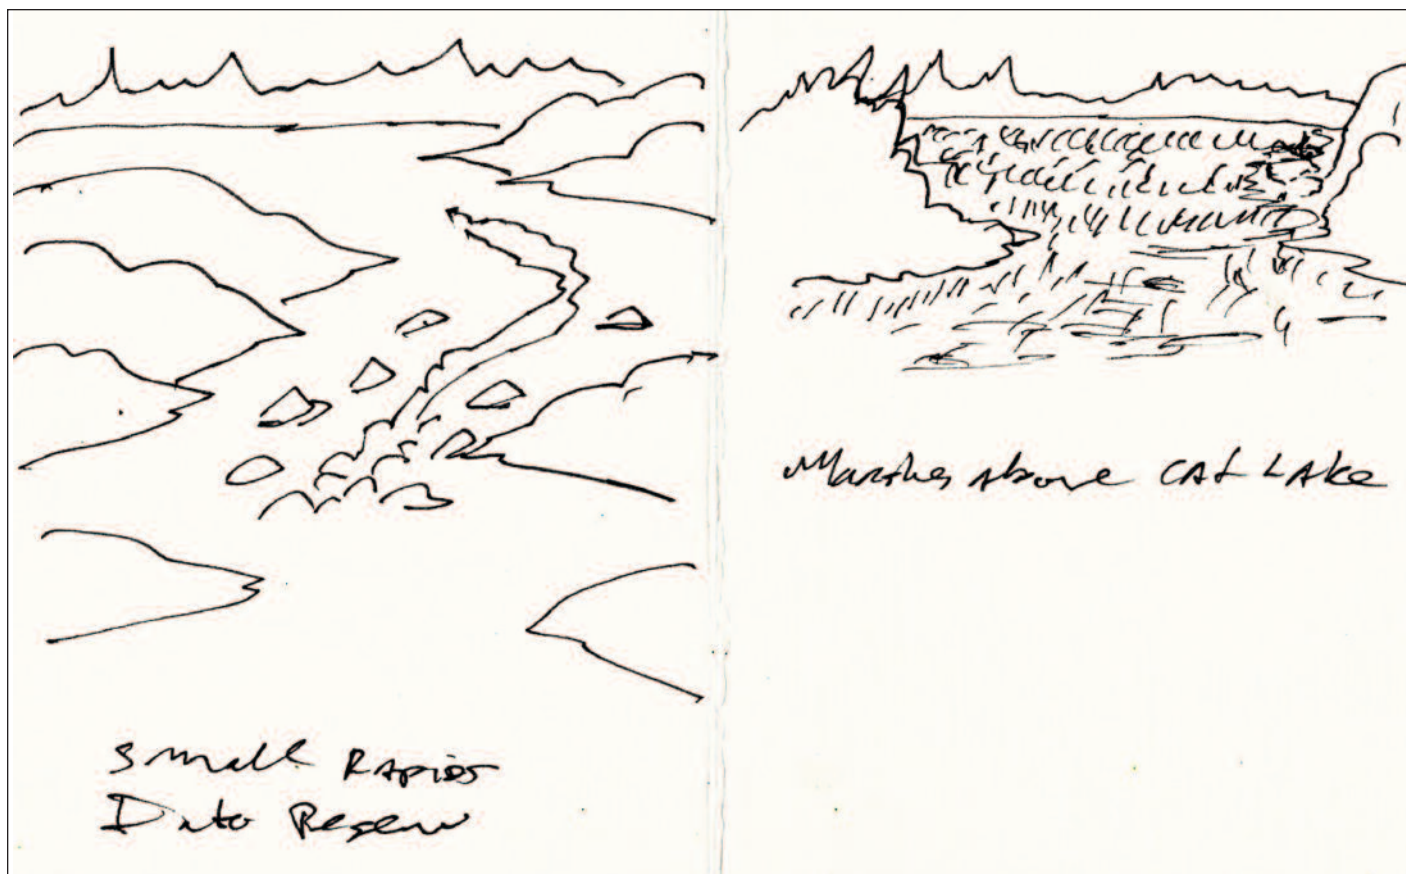 Small Rapids
Into
Marshes Above CAt LAke